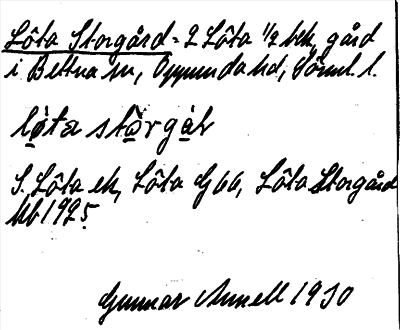 Löta Storgård = 2 Löta 1/2 hek, gård
i Bettna sn, Oppunda hd, Söml. l.
lǫ̀ta stǫ̀rgạ̀r
S. Löta ek, Löta G66, Löta Storgård
Kb 1925.
Gunnar Annell 1930